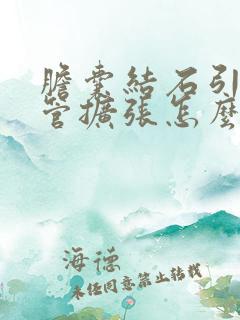 膽囊結石引
管擴張怎麼
海德
未经同意禁止转载